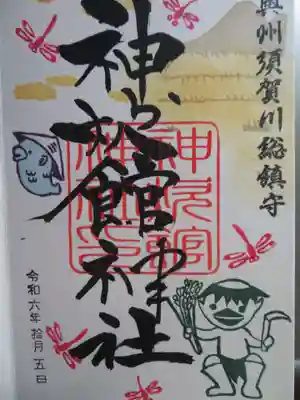 奥州須賀川総鎮守
神炊館神社
令和六年拾月五日